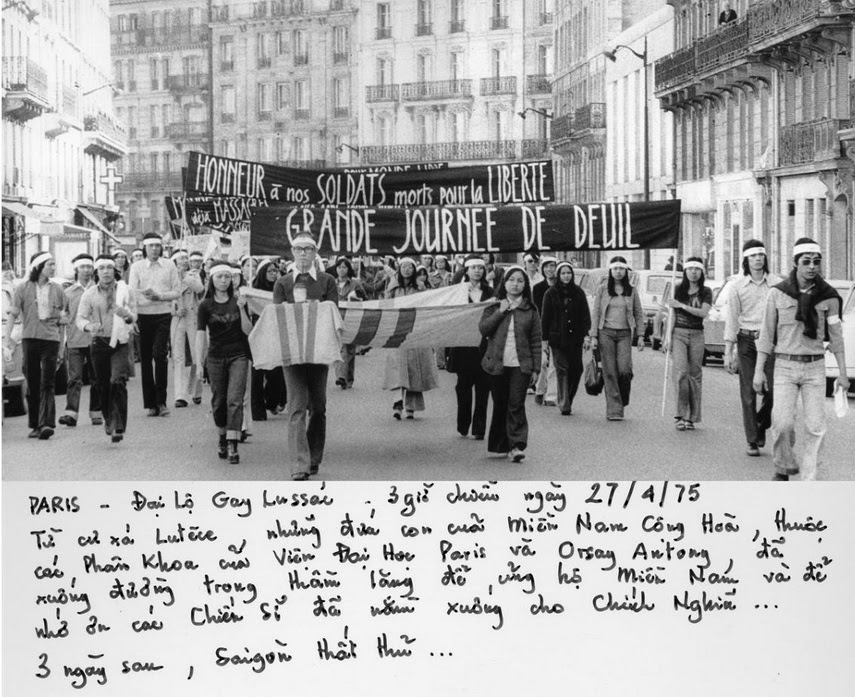 POUR MONDE LIBRE
HONNEUR à nos SOLDATS morts pour la LIBERTE
MASSACRE
GRANDE JOURNEE DE DEUIL
PARIS - Đại Lộ Gay Lussac . 3 giờ chiều ngày 27/4/75
Từ cư xá Lutèce, những đứa con cuối Miền Nam Công Hoà, thuộc
các Phân Khoa của Viện Đại Học Paris và Orsay Antony, đã
xuống đường trong thầm lặng để ủng hộ Miền Nam và để
nhớ ơn các Chiến Sĩ đã nằm xuống cho Chính Nghĩa ...
3 ngày sau, Saigòn thất thủ ...